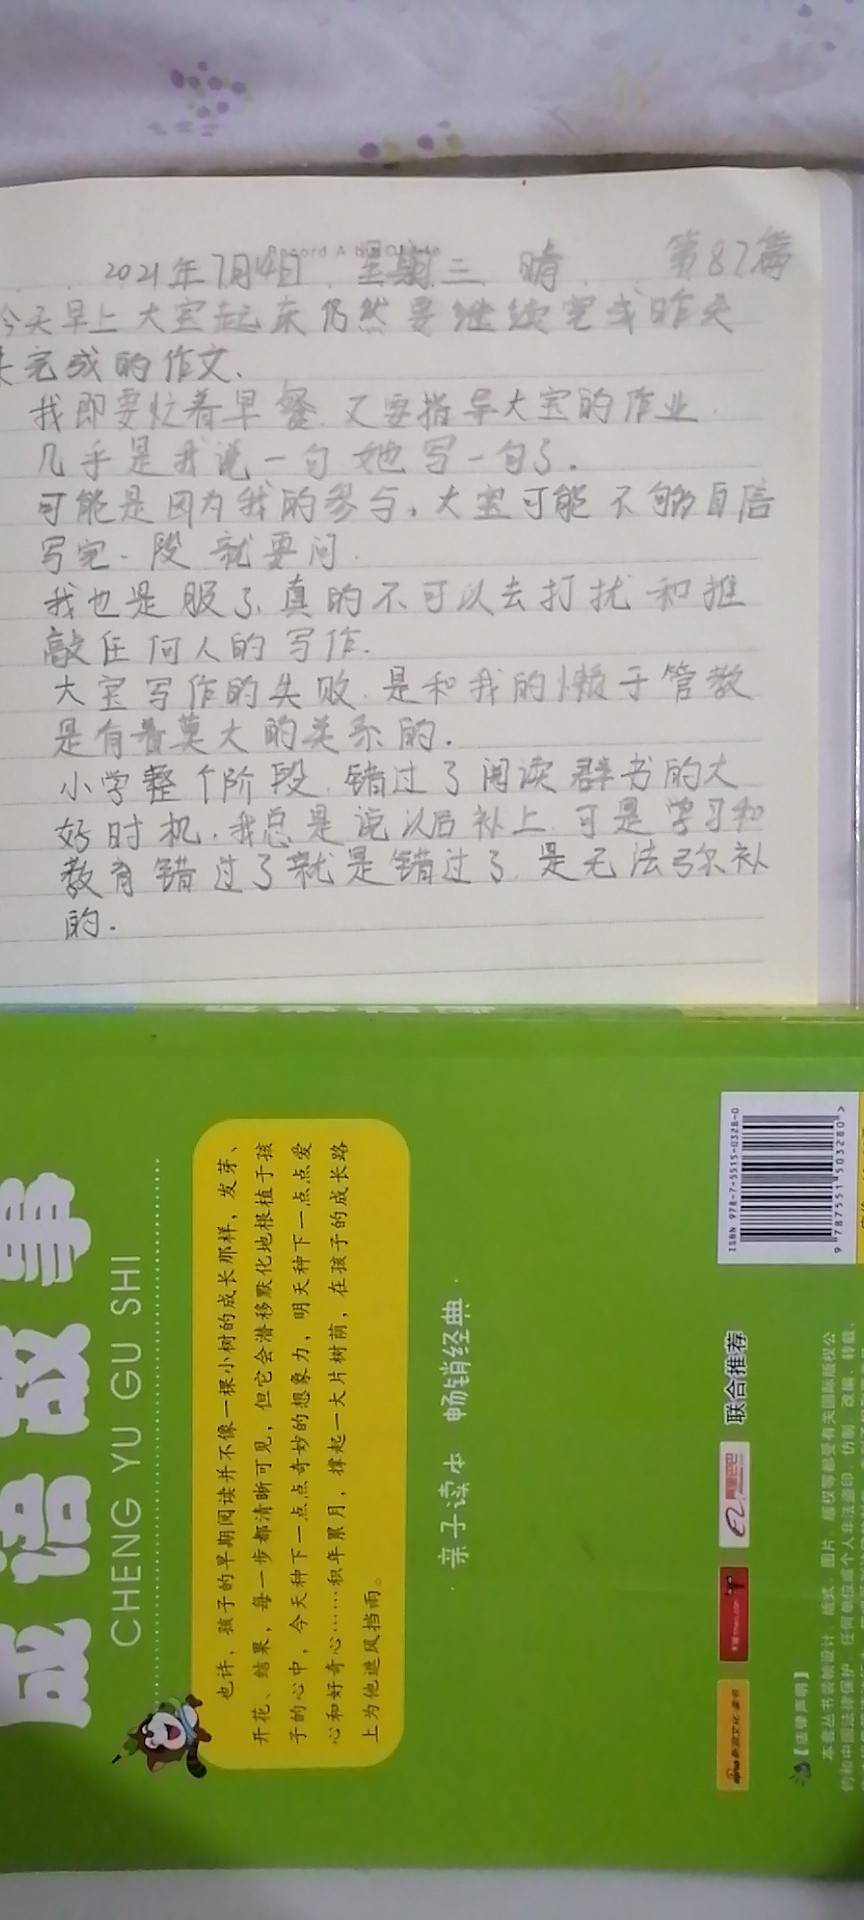 2021年7月14日 星期三 晴 第87篇
今天早上大宝起床仍然要继续完成昨天
未完成的作文、
我即要忙着早餐.又要指导大宝的作业.
几乎是我说一句她写一句了.
可能是因为我的参与,大宝可能不够自信
写完一段就要问.
我也是服了.真的不可以去打扰和推
敲任何人的写作.
大宝写作的失败.是和我的懒于管教
是有着莫大的关系的.
小学整个阶段.错过了阅读群书的大
好时机.我总是说以后补上.可是学习和
教育错过了就是错过了.是无法弥补
的.
成语故事
CHENG YU GU SHI
也许,孩子的早期阅读并不像一棵小树的成长那样,发芽、
开花、结果,每一步都清晰可见,但它会潜移默化地根植于孩
子的心中,今天种下一点点奇妙的想象力,明天种下一点点爱
心和好奇心……积年累月,撑起一大片树荫,在孩子的成长路
上为他遮风挡雨。
·亲子读本 畅销经典·
联合推荐
阿里巴巴
ISBN 978-7-5515-0328-0
9 787551 503280 >
【法律声明】
本套丛书装帧设计、版式、图片、版权等都受有关国际版权公
约和中国法律保护,任何单位或个人非法盗印、仿制、改编、转载、